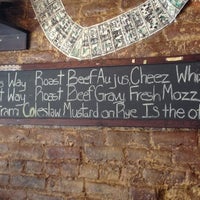 Way Roast Beef Au jus Cheez Whi
t Way Roast Beef Gravy Fresh Mozz
rami Coleslaw Mustard on Rye Is the ot